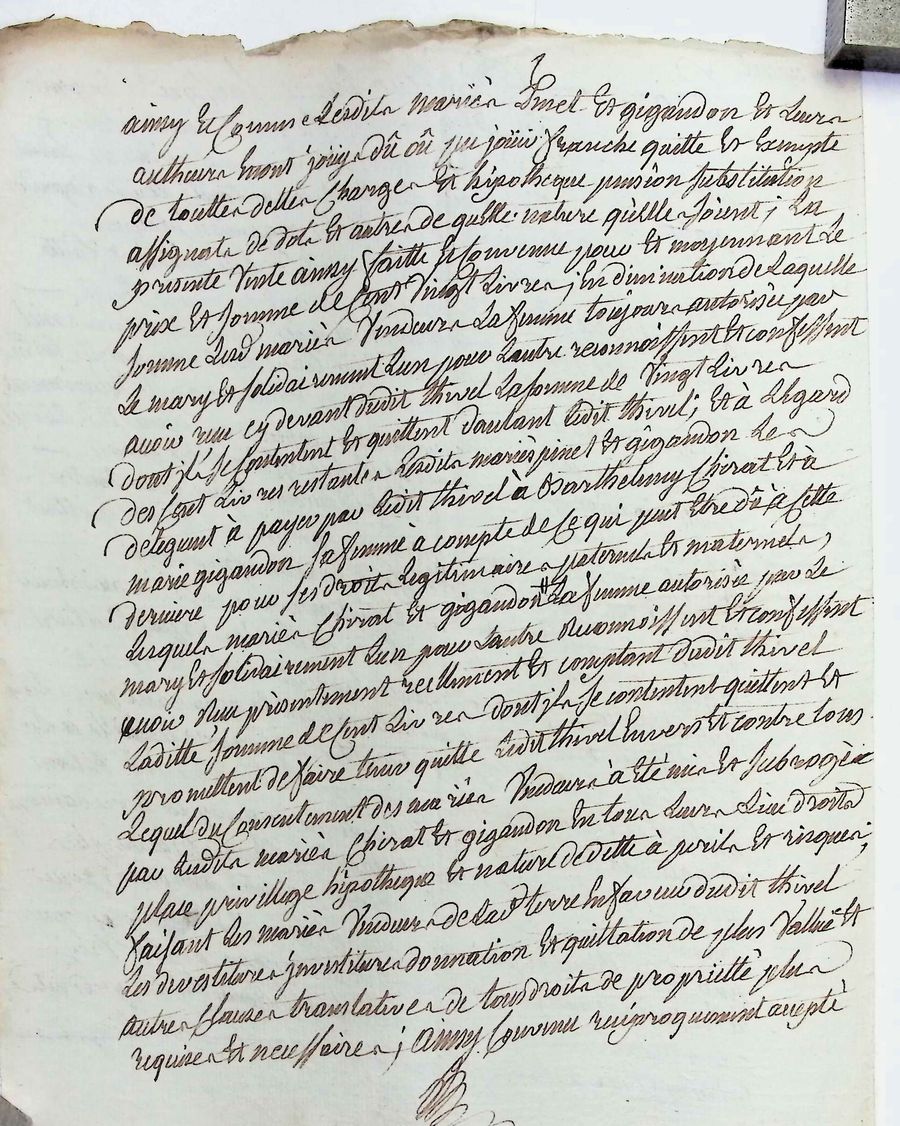 ainsy Et Comme Lesdits mariés Pinel Et gigandon Et Leurs
autheurs En ont joüy dû où pu joüir franche quitte Et Exempte
de touttes dettes Charges Et hipotheque pension substitution
assignats de dots Et autres de quelle nature qu'elles soient; La
presente Vente ainsy faitte Et Convenue pour Et moyennant Le
prix Et somme de Cent Vingt Livres; En diminution de Laquelle
somme Lesd mariés Vendeurs La femme toujours autorisée par
Le mary Et solidairement L'un pour L'autre reconnoissent Et confessent
avoir reçu cy devant dudit thivel La somme de Vingt Livres
dont ils se Contentent Et quittent d'autant Ledit thivel; Et à L'Egard
des Cent Livres restantes Lesdits mariés pinel Et gigandon Les
deleguent à payer par Ledit thivel à Barthelemy Chirat Et à
marie gigandon sa femme à compte de Ce qui peut Etre dû à Cette
derniere pour ses droits Legitimaires paternels Et maternels,
Lesquels mariés Chirat Et gigandon La femme autorisée par Le
mary Et solidairement L'un pour L'autre Reconnoissent Et confessent
avoir Reçu présentement reellement Et comptant dudit thivel
Laditte somme de Cent Livres dont ils se contentent quittent Et
promettent de faire tenir quitte Ledit thivel Envers Et contre tous
Lequel du Consentement des mariés Vendeurs à Eté mis Et subrogéz
par Lesdits mariés Chirat Et gigandon En tous Leurs Lieu droits
place privillege hipotheque Et nature de dette à perils Et risques;
faisant Les mariés Vendeurs de La de terre En faveur dudit thivel
Les devestitures jnvestitures donnation Et quittation de plus Vallue Et
autres Clauses translatives de tous droits de proprietté plus
requises Et necessaires; ainsy Convenu reciproquement accepté